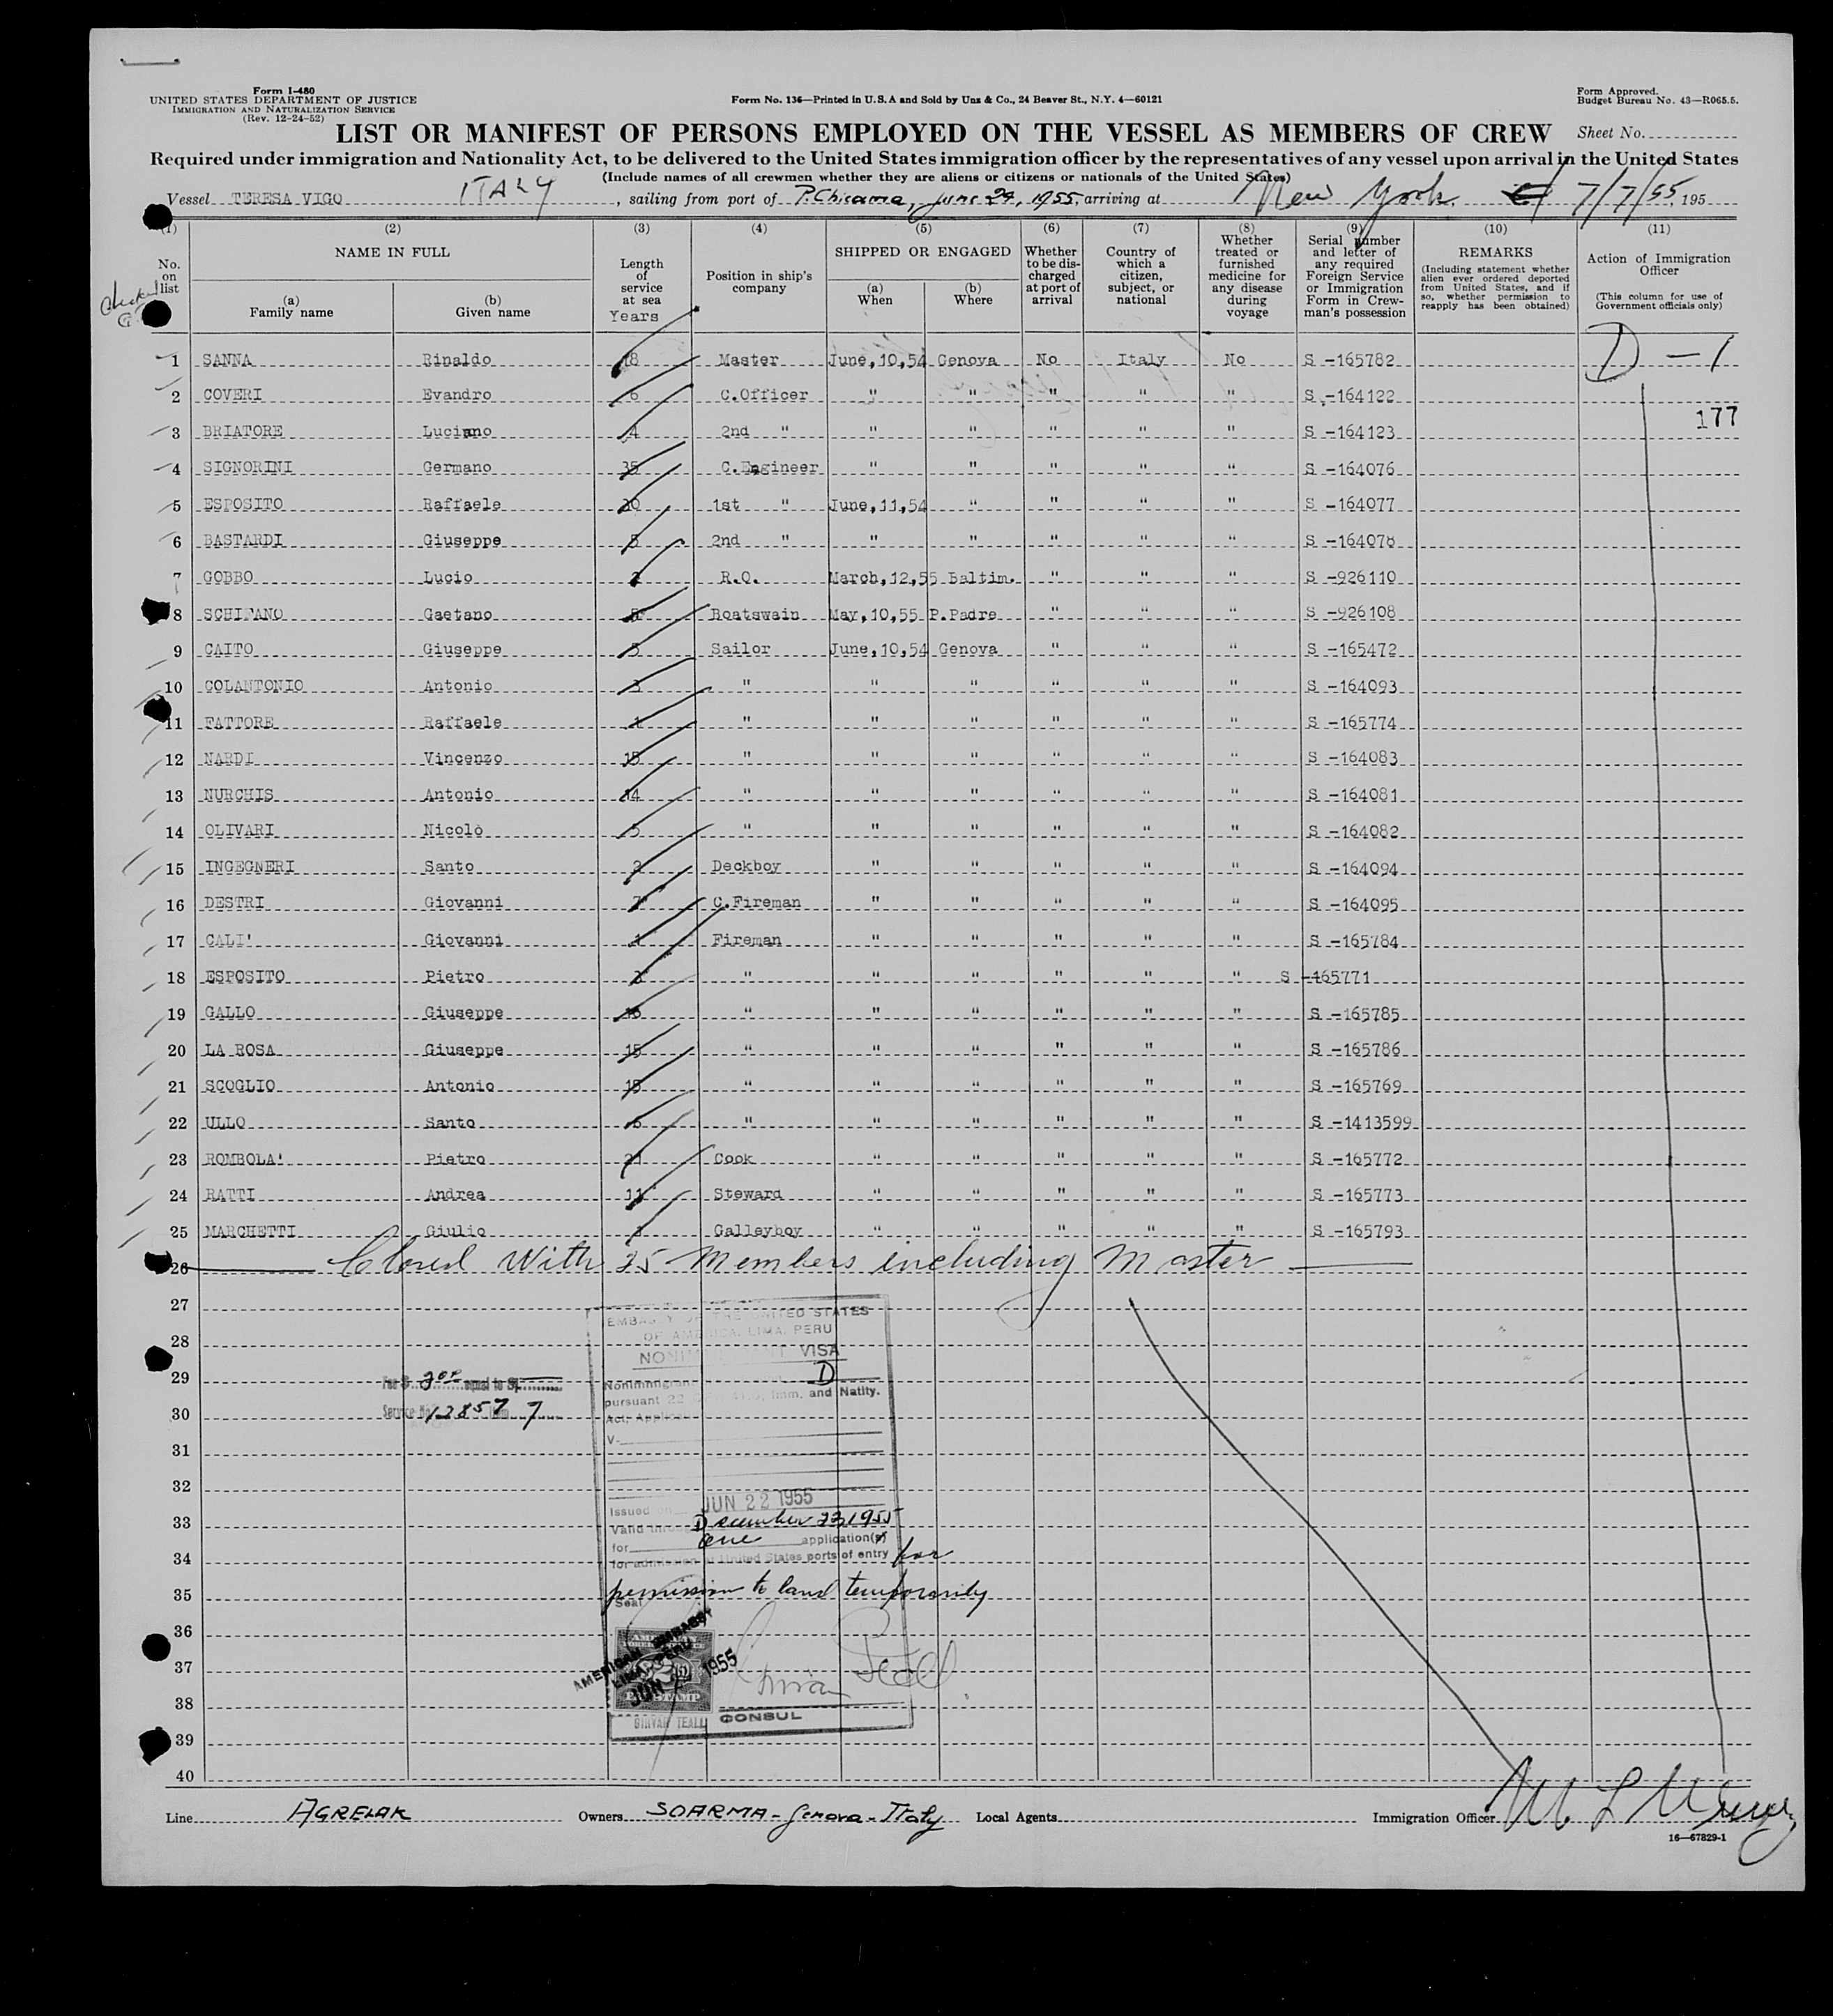 Form I-480
UNITED STATES DEPARTMENT OF JUSTICE
IMMIGRATION AND NATURALIZATION SERVICE
(Rev. 12-24-52)
Form No. 136—Printed in U.S.A and Sold by Unz & Co., 24 Beaver St., N.Y. 4—60121
Form Approved.
Budget Bureau No. 43—R065.5.
LIST OR MANIFEST OF PERSONS EMPLOYED ON THE VESSEL AS MEMBERS OF CREW
Sheet No.
Required under immigration and Nationality Act, to be delivered to the United States immigration officer by the representatives of any vessel upon arrival in the United States
(Include names of all crewmen whether they are aliens or citizens or nationals of the United States)
Vessel TERESA VIGO ITALY, sailing from port of P. Chicama, June 24, 1955 arriving at New York 7/7/55, 195
(1) No. on list
(2) NAME IN FULL
(a) Family name
(b) Given name
(3) Length of service at sea Years
(4) Position in ship's company
(5) SHIPPED OR ENGAGED
(a) When
(b) Where
(6) Whether to be discharged at port of arrival
(7) Country of which a citizen, subject, or national
(8) Whether treated or furnished medicine for any disease during voyage
(9) Serial number and letter of any required Foreign Service or Immigration Form in Crewman's possession
(10) REMARKS
(Including statement whether alien ever ordered deported from United States, and if so, whether permission to reapply has been obtained)
(11) Action of Immigration Officer
(This column for use of Government officials only)
1 SANNA Rinaldo 18 Master June,10,54 Genova No Italy No S -165782 D - 1
2 COVERI Evandro 6 C.Officer " " " " " S -164122
177
3 BRIATORE Luciano 4 2nd " " " " " " S -164123
4 SIGNORINI Germano 35 C.Engineer " " " " " S -164076
5 ESPOSITO Raffaele 1st " June,11,54 " " " " S -164077
6 BASTARDI Giuseppe 5 2nd " " " " " " S -164078
7 GOBBO Lucio R.O. March,12,55 Baltim. " " " S -926110
8 SCHIFANO Gaetano Boatswain May,10,55 P.Padre " " " S -926108
9 CAITO Giuseppe 5 Sailor June,10,54 Genova " " " S -165472
10 COLANTONIO Antonio 3 " " " " " " S -164093
11 FATTORE Raffaele 1 " " " " " " S -165774
12 NARDI Vincenzo 15 " " " " " " S -164083
13 NURCHIS Antonio 14 " " " " " " S -164081
14 OLIVARI Nicolò 5 " " " " " " S -164082
15 INGEGNERI Santo 2 Deckboy " " " " " S -164094
16 DESTRI Giovanni 7 C.Fireman " " " " " S -164095
17 CALI' Giovanni 1 Fireman " " " " " S -165784
18 ESPOSITO Pietro " " " " " " S -165771
19 GALLO Giuseppe " " " " " " S -165785
20 LA ROSA Giuseppe 15 " " " " " " S -165786
21 SCOGLIO Antonio 15 " " " " " " S -165769
22 ULLO Santo 6 " " " " " " S -1413599
23 ROMBOLA' Pietro 21 Cook " " " " " S -165772
24 RATTI Andrea 11 Steward " " " " " S -165773
25 MARCHETTI Giulio Galleyboy " " " " " S -165793
26 Closed With 25 Members including Master
27
28
29
30
31
32
33
34
35
36
37
38
39
40
EMBASSY OF THE UNITED STATES
OF AMERICA, LIMA, PERU
NONIMMIGRANT VISA
Nonimmigrant D
pursuant 22 Imm. and Natlty.
Act; Applica
V-
Issued on JUN 22 1955
Valid through December 22, 1955
for One application(s)
for admission at United States ports of entry for
permission to land temporarily
Seal
AMERICAN EMBASSY
LIMA, PERU
JUN 1955
GIRVAN TEALL
CONSUL
Fee $ equal to
Service No. 12857 Item 7
Line AGRELAK Owners SOARMA - Genova - Italy Local Agents Immigration Officer
16—67829-1